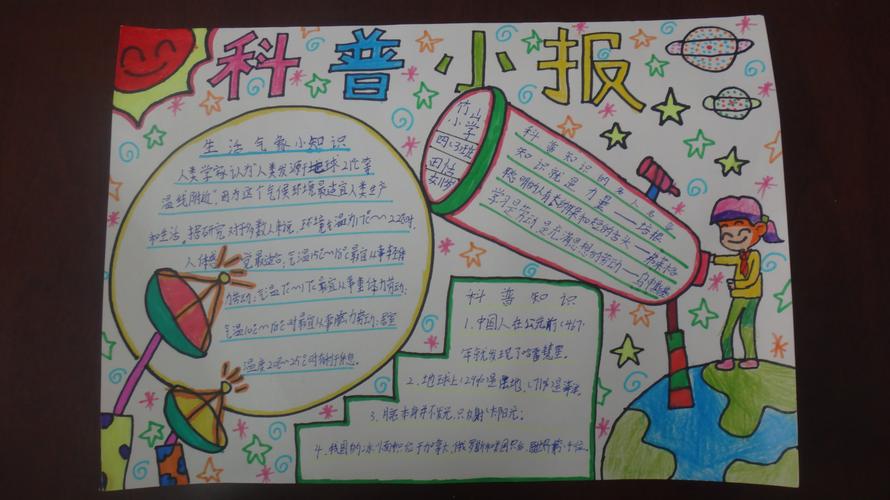 科普小报
生活气象小知识
人类学家认为"人类发源于地球21℃等
温线附近"因为这个气候环境最适宜人类生产
和生活。据研究对于多数人来说,环境气温为17℃~22℃时,
人体感觉最适合,气温15℃~18℃最宜从事轻体
力劳动;气温7℃~17℃最宜从事重体力劳动;
气温10℃~18℃时最宜从事脑力劳动;居室
温度20~25℃时有利于休息。
竹山
小学
四(3)班
田恬
科普知识的名人名言
知识就是力量——培根
学习是劳动,是充满思想的劳动——乌申斯基
科普知识
1.中国人在公元前1467
年就发现了哈雷慧星。
2.地球上29%是陆地,71%是海洋
3.月球本身并不发光,只反射太阳光。
4.我国的冰川面积位于加拿大,俄罗斯和美国只后,世界第4位